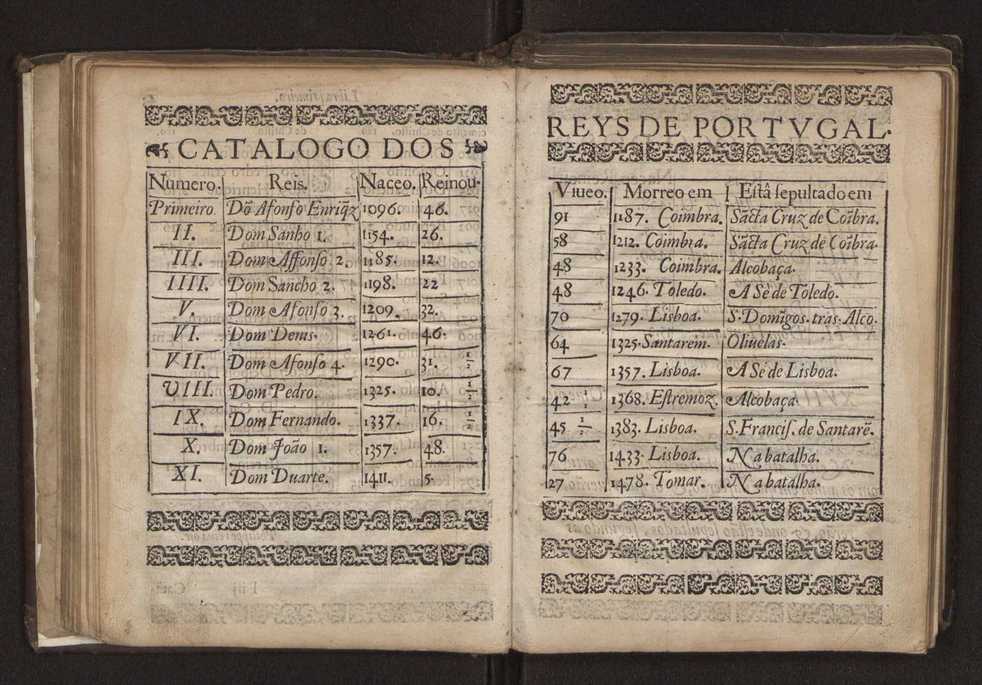 CATALOGO DOS
Numero. Reis. Naceo. Reinou.
Primeiro Dõ Afonſo Enriq̃z 1096. 46.
II. Dom Sanho 1. 1154. 26.
III. Dom Affonſo 2. 1185. 12.
IIII. Dom Sancho 2. 1198. 22
V. Dom Afonſo 3. 1209. 32.
VI. Dom Denis. 1261. 46.
VII. Dom Afonſo 4. 1290. 31. ½
VIII. Dom Pedro. 1325. 10. ½
IX. Dom Fernando. 1337. 16. ½
X. Dom João 1. 1357. 48.
XI. Dom Duarte. 1411. 5.
REYS DE PORTVGAL.
Viueo. Morreo em Eſtâ ſepultado em
91 1187. Coimbra. Sãcta Cruz de Coĩbra.
58 1212. Coimbra. Sãcta Cruz de Coĩbra.
48 1233. Coimbra. Alcobaça.
48 1246. Toledo. A Sè de Toledo.
70 1279. Lisboa. S. Domĩgos. tras. Alco.
64 1325. Santarem. Oliuelas.
67 1357. Lisboa. A Sè de Lisboa.
42 ½ 1368. Eſtremoz. Alcobaça.
45 ½ 1383. Lisboa. S. Franciſ. de Santarẽ.
76 1433. Lisboa. Na batalha.
27 1478. Tomar. Na batalha.